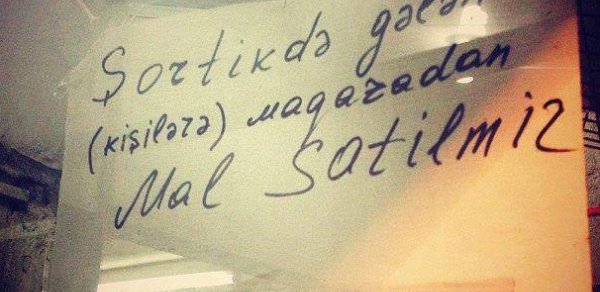 Şortikdə gələn
(kişilərə) mağazadan
Mal Satilmiz